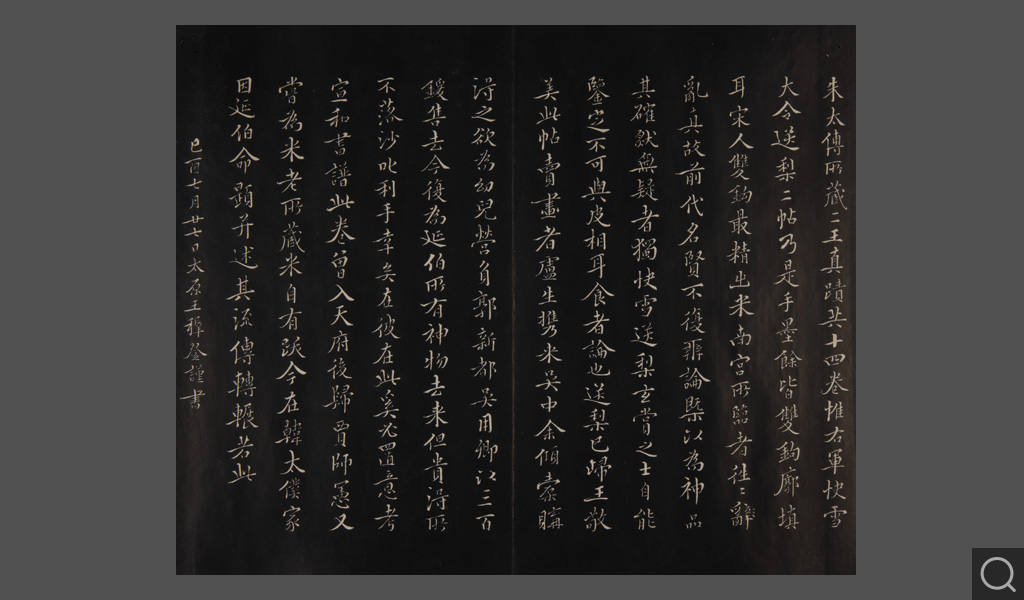 朱太傅所蔵二王真蹟共十四卷惟右軍快雪
大令送梨二帖乃是手墨餘皆雙鉤廓填
耳宋人雙鉤最精出米南宮所臨者往〻辭
亂真故前代名賢不復辨論槩以為神品
其確然無疑者獨快雪送梨玄賞之士自能
鑒定不可與皮相耳食者論也送梨已歸王敬
美此帖賣畫者盧生攜來吳中余傾橐購
得之欲為幼兒營負郭新都吳用卿以三百
鍰售去今復為延伯所有神物去来但貴得所
不落沙叱利手幸矣在彼在此奚必置意考
宣和書譜此卷曾入天府後歸賈師憲又
嘗為米老所藏米自有跋今在韓太僕家
因延伯命題并述其流傳轉輾若此
己酉七月廿七日太原王穉登謹書